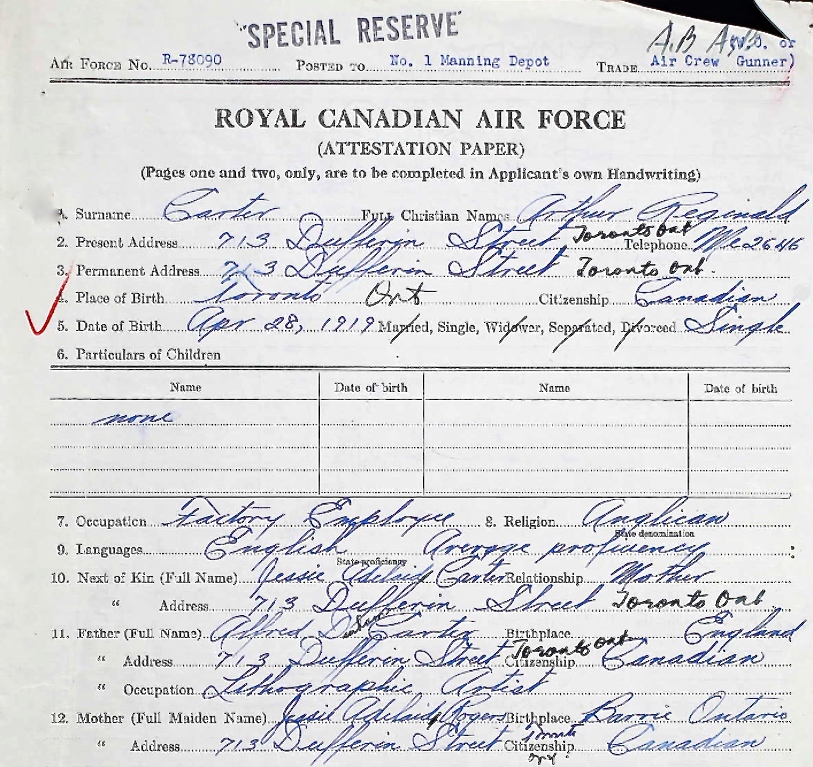 "SPECIAL RESERVE"
A.B A
AIR FORCE No. R-78090 POSTED TO No. 1 Manning Depot TRADE Air Crew (W.O. or Gunner)
ROYAL CANADIAN AIR FORCE
(ATTESTATION PAPER)
(Pages one and two, only, are to be completed in Applicant's own Handwriting)
1. Surname Carter Full Christian Names Arthur Reginald
2. Present Address 713 Dufferin Street Toronto Ont Telephone Me 2646
3. Permanent Address 713 Dufferin Street Toronto Ont.
4. Place of Birth Toronto Ont Citizenship Canadian
5. Date of Birth Apr 28, 1919 Married, Single, Widower, Separated, Divorced Single
6. Particulars of Children
Name Date of birth Name Date of birth
none
7. Occupation Factory Employee 8. Religion Anglican
State denomination
9. Languages English Average proficency
State proficiency
10. Next of Kin (Full Name) Jessie Adelaide Carter Relationship Mother
" Address 713 Dufferin Street Toronto Ont
11. Father (Full Name) Alfred D Carter Birthplace England
" Address 713 Dufferin Street Toronto Ont Citizenship Canadian
" Occupation Lithographic Artist
12. Mother (Full Maiden Name) Jessie Adelaide Rogers Birthplace Barrie Ontario
" Address 713 Dufferin Street Toronto Ont Citizenship Canadian